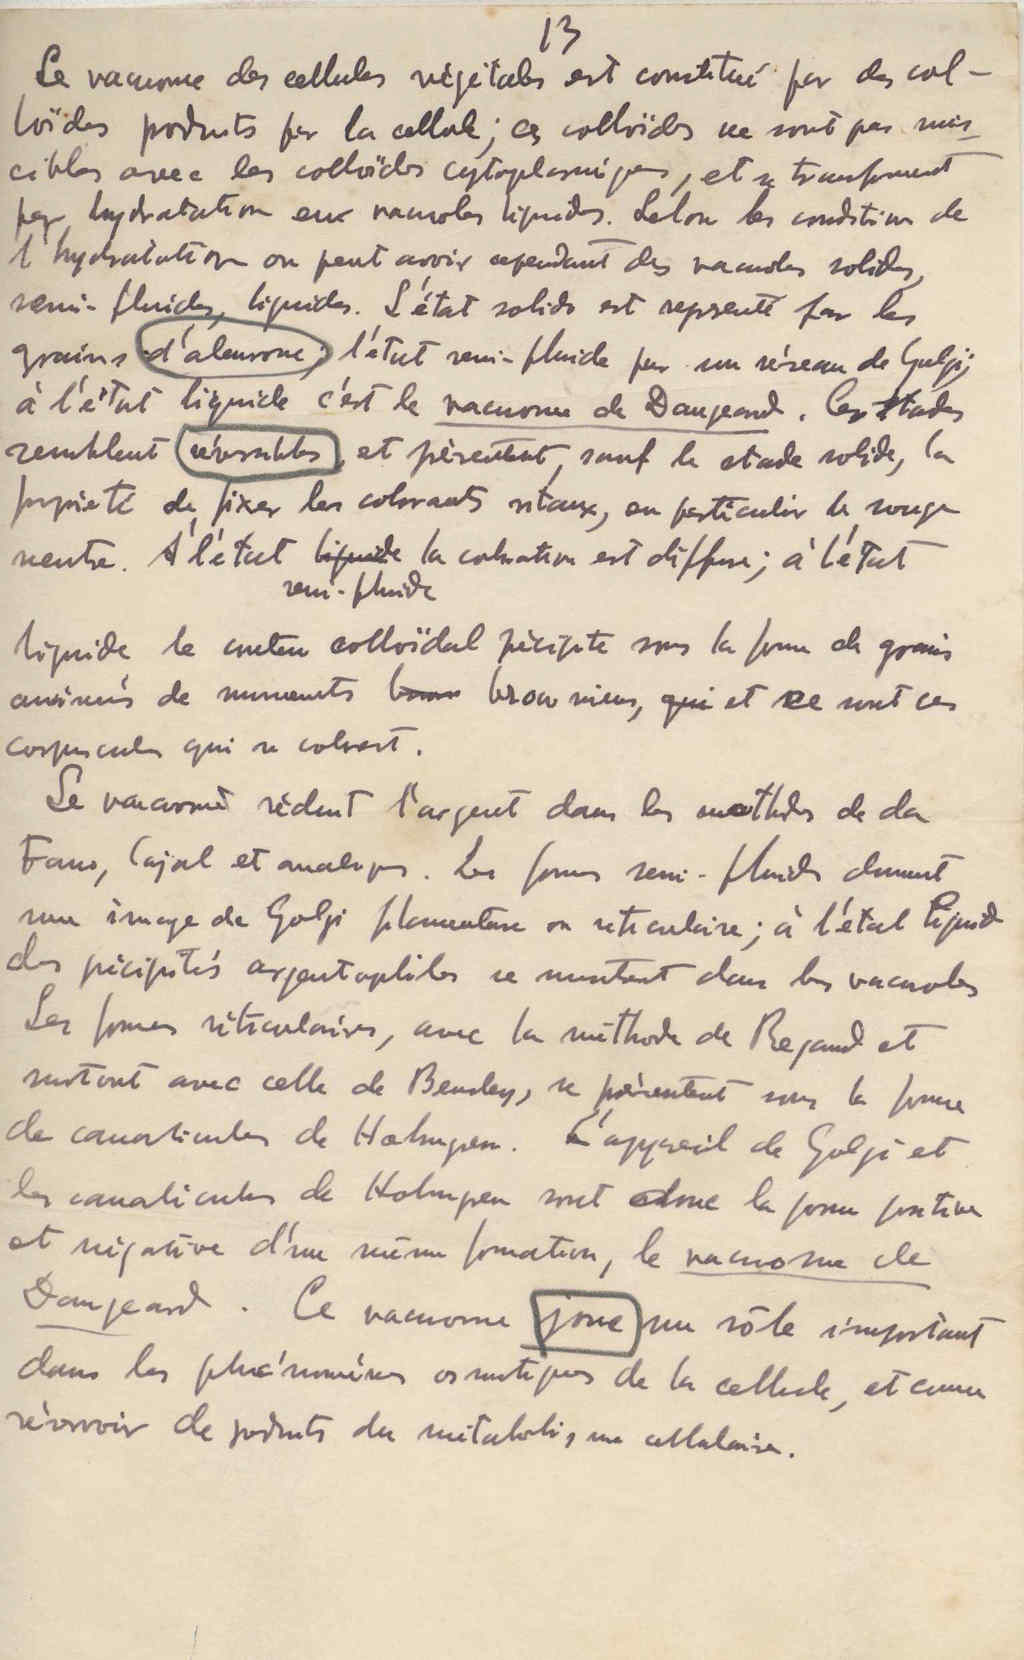 13
Le vacuome des cellules végétales est constitué par des col-
loïdes produits par la cellule; ces colloïdes ne sont pas mis-
cibles avec les colloïdes cytoplasmiques, et se transforment
par hydratation eux vacuoles liquides. Selon les condition de
l'hydratation on peut avoir cependant des vacuoles solides,
semi-fluides, liquides. L'état solide est représenté par les
grains d'aleurone; l'état semi-fluide par un réseau de Golgi;
à l'état liquide c'est le vacuome de Dangeard. Ces stades
semblent réversibles, et présentent, sauf le stade solide, la
proprieté de fixer les colorants vitaux, en particulier le rouge
neutre. A l'état liquide la coloration est diffuse; à l'état
semi-fluide
liquide le contenu colloïdal précipite sous la forme de grains
animés de mouvements brow browniens, qui et ce sont ces
corpuscules qui se colorent.
Le vacuome réduit l'argent dans les methodes de da
Fano, Cajal et analogues. Les formes semi-fluides donnent
une image de Golgi filamentaire ou réticulaire; à l'état liquide
des précipités argentophiles se montrent dans les vacuoles
Les formes réticulaires, avec la méthode de Regaud et
surtout avec celle de Bensley, se présentent sous la forme
de canalicules de Holmgren. L'appareil de Golgi et
les canalicules de Holmgren sont donc la forme positive
et négative d'une même formation, le vacuome de
Dangeard. Ce vacuome joue un rôle important
dans les phénomènes osmotiques de la cellule, et comme
réservoir de produits du métabolisme cellulaire.